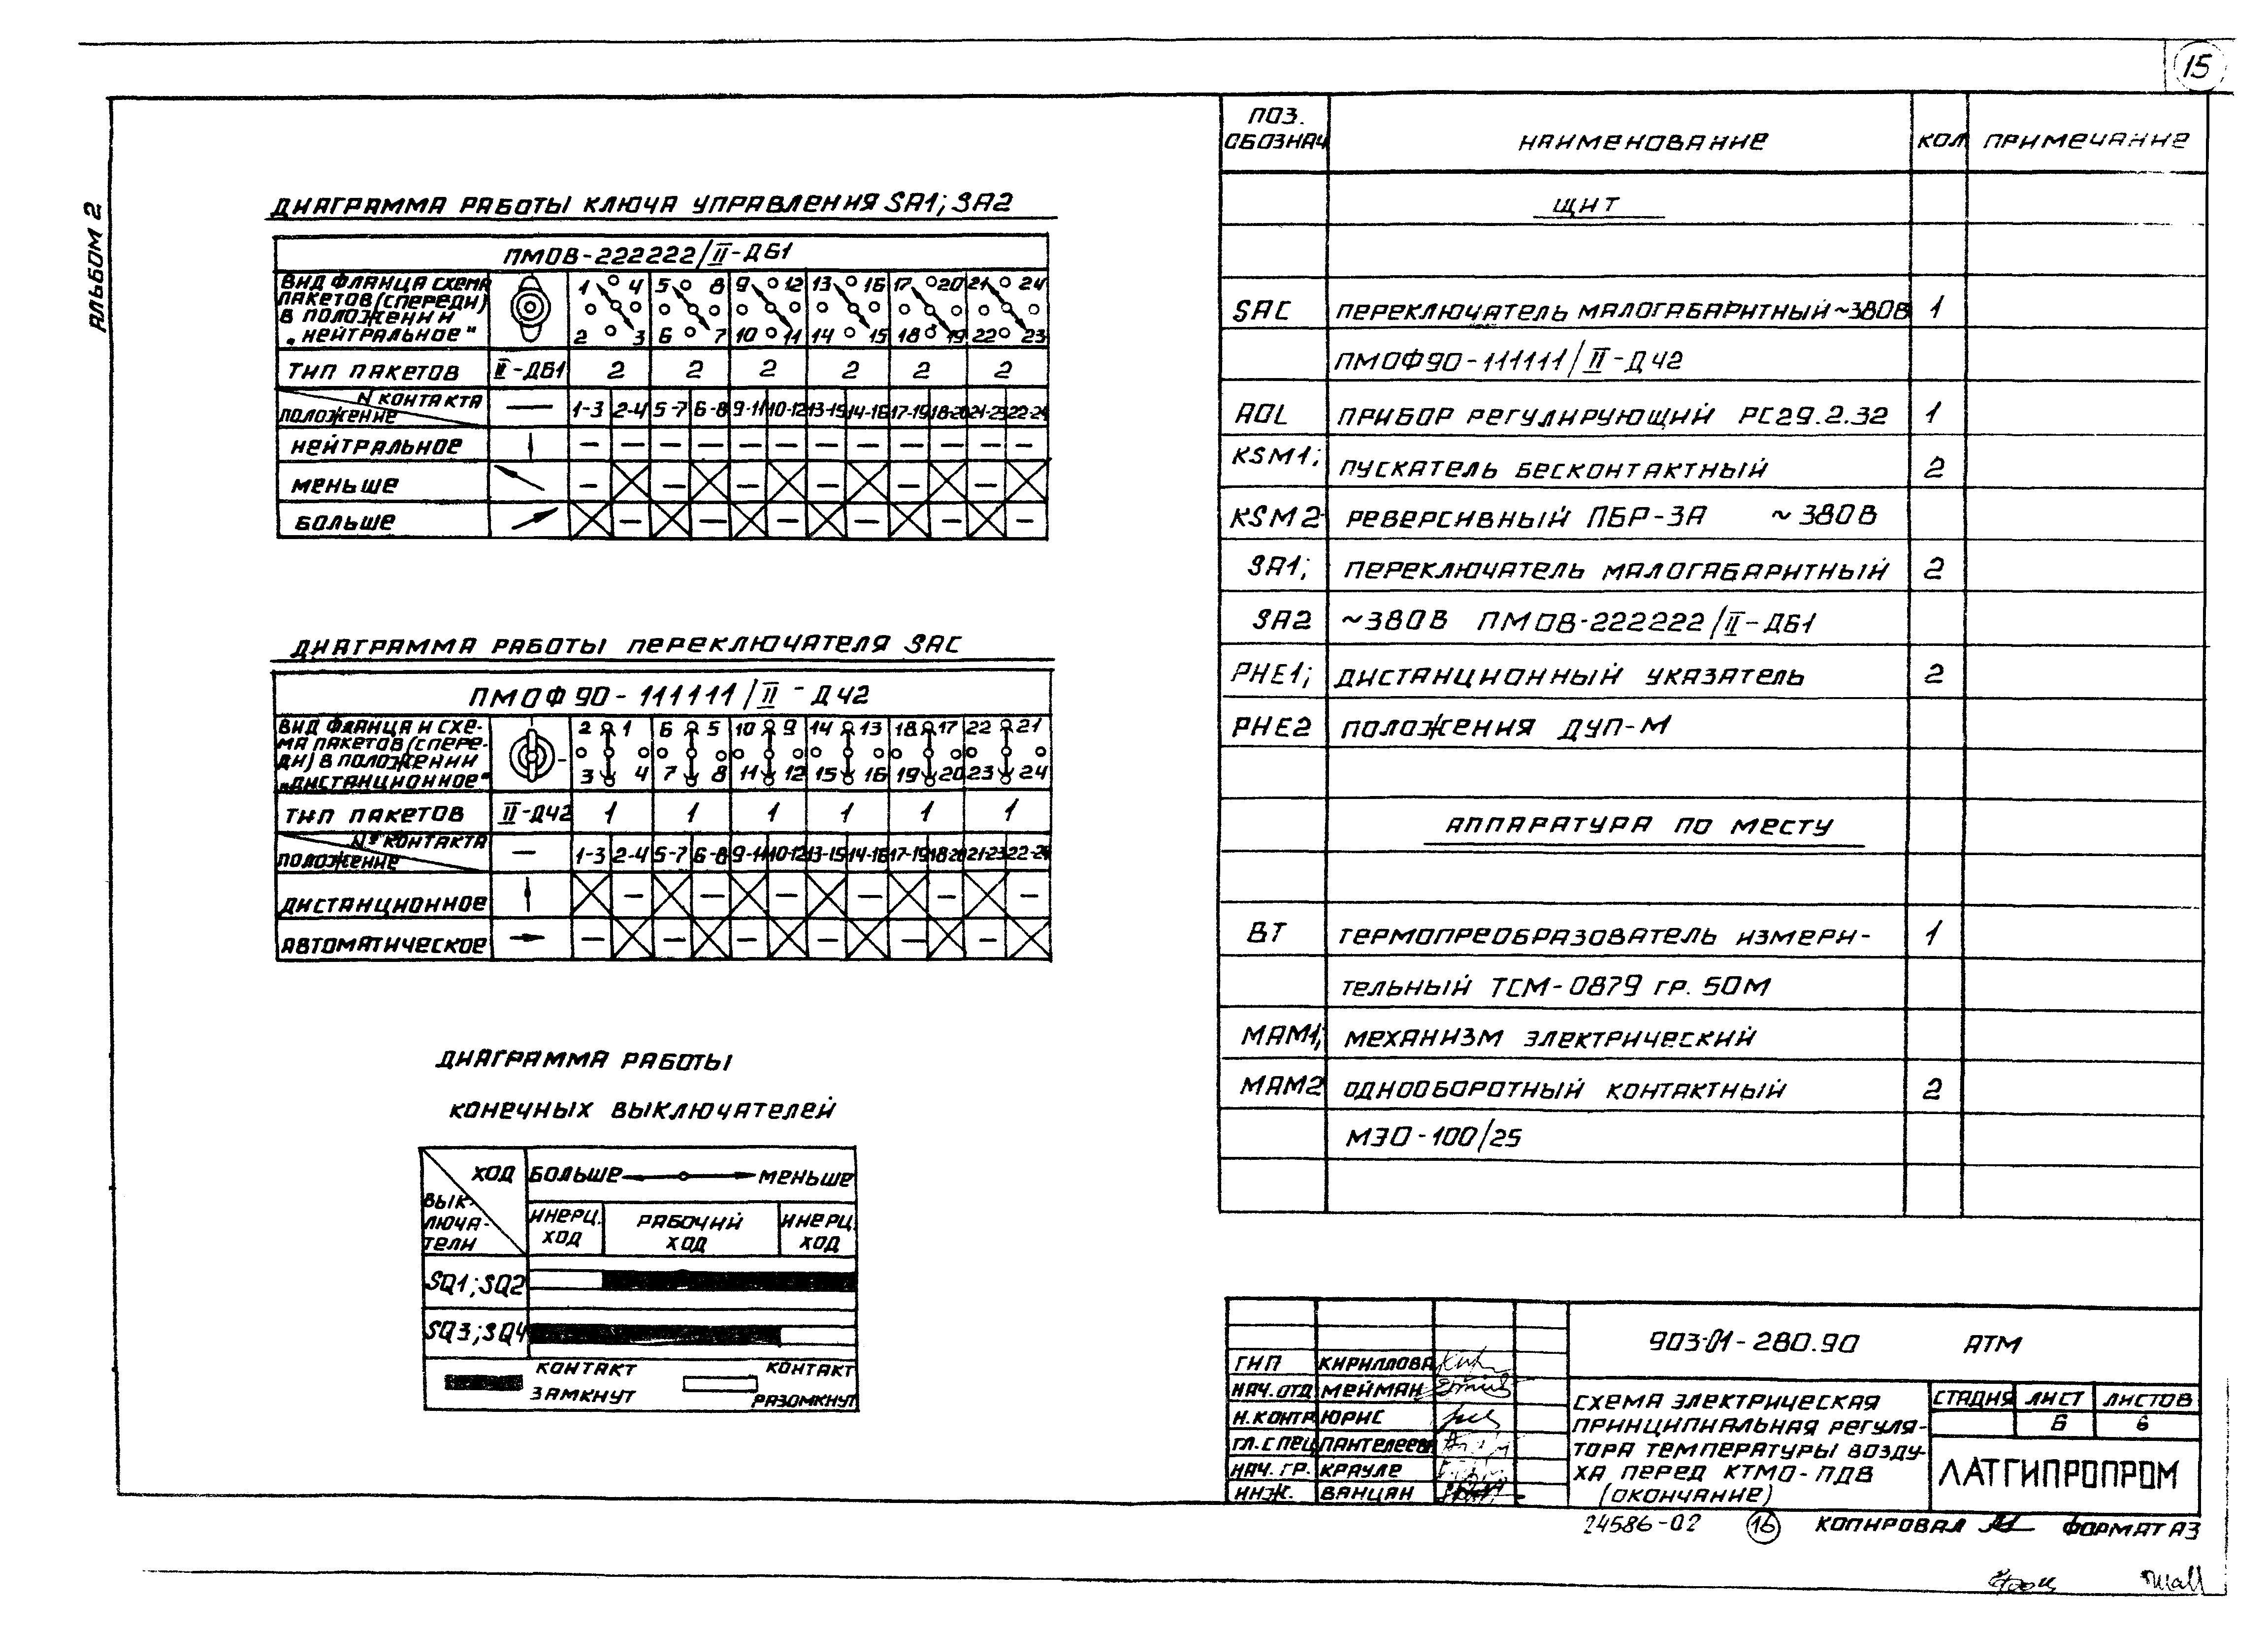 15
АЛЬБОМ 2
ДИАГРАММА РАБОТЫ КЛЮЧА УПРАВЛЕНИЯ SA1; SA2
ПМОВ-222222/II-ДБ1
ВИД ФЛАНЦА СХЕМА
ПАКЕТОВ (СПЕРЕДИ)
В ПОЛОЖЕНИИ
„НЕЙТРАЛЬНОЕ"
1 4 5 8 9 12 13 16 17 20 21 24
2 3 6 7 10 11 14 15 18 19 22 23
ТИП ПАКЕТОВ II-ДБ1 2 2 2 2 2 2
N КОНТАКТА
ПОЛОЖЕНИЕ — 1-3 2-4 5-7 6-8 9-11 10-12 13-15 14-16 17-19 18-20 21-23 22-24
НЕЙТРАЛЬНОЕ — — — — — — — — — — — —
МЕНЬШЕ — — — — — —
БОЛЬШЕ — — — — — —
ДИАГРАММА РАБОТЫ ПЕРЕКЛЮЧАТЕЛЯ SAC
ПМОФ90-111111/II-Д42
ВИД ФЛАНЦА И СХЕ-
МА ПАКЕТОВ (СПЕРЕ-
ДИ) В ПОЛОЖЕНИИ
„ДИСТАНЦИОННОЕ"
2 1 6 5 10 9 14 13 18 17 22 21
3 4 7 8 11 12 15 16 19 20 23 24
ТИП ПАКЕТОВ II-Д42 1 1 1 1 1 1
N° КОНТАКТА
ПОЛОЖЕНИЕ — 1-3 2-4 5-7 6-8 9-11 10-12 13-15 14-16 17-19 18-20 21-23 22-24
ДИСТАНЦИОННОЕ — — — — — —
АВТОМАТИЧЕСКОЕ — — — — — —
ДИАГРАММА РАБОТЫ
КОНЕЧНЫХ ВЫКЛЮЧАТЕЛЕЙ
ХОД БОЛЬШЕ МЕНЬШЕ
ВЫК-
ЛЮЧА-
ТЕЛИ
ИНЕРЦ.
ХОД
РАБОЧИЙ
ХОД
ИНЕРЦ.
ХОД
SQ1; SQ2
SQ3; SQ4
КОНТАКТ
ЗАМКНУТ
КОНТАКТ
РАЗОМКНУТ
ПОЗ.
ОБОЗНАЧ НАИМЕНОВАНИЕ КОЛ ПРИМЕЧАНИЕ
ЩИТ
SAC ПЕРЕКЛЮЧАТЕЛЬ МАЛОГАБАРИТНЫЙ ~380В 1
ПМОФ90-111111/II-Д42
AOL ПРИБОР РЕГУЛИРУЮЩИЙ РС29.2.32 1
KSM1; ПУСКАТЕЛЬ БЕСКОНТАКТНЫЙ 2
KSM2 РЕВЕРСИВНЫЙ ПБР-3А ~380В
SA1; ПЕРЕКЛЮЧАТЕЛЬ МАЛОГАБАРИТНЫЙ 2
SA2 ~380В ПМОВ-222222/II-ДБ1
PHE1; ДИСТАНЦИОННЫЙ УКАЗАТЕЛЬ 2
PHE2 ПОЛОЖЕНИЯ ДУП-М
АППАРАТУРА ПО МЕСТУ
BT ТЕРМОПРЕОБРАЗОВАТЕЛЬ ИЗМЕРИ- 1
ТЕЛЬНЫЙ ТСМ-0879 ГР. 50М
MAM1; МЕХАНИЗМ ЭЛЕКТРИЧЕСКИЙ
MAM2 ОДНООБОРОТНЫЙ КОНТАКТНЫЙ 2
МЭО-100/25
903-01-280.90 АТМ
ГИП КИРИЛЛОВА
НАЧ. ОТД МЕЙМАН
Н. КОНТР ЮРИС
ГЛ. СПЕЦ ПАНТЕЛЕЕВ
НАЧ. ГР. КРАУЛЕ
ИНЖ. ВАНЦАН
СХЕМА ЭЛЕКТРИЧЕСКАЯ
ПРИНЦИПИАЛЬНАЯ РЕГУЛЯ-
ТОРА ТЕМПЕРАТУРЫ ВОЗДУ-
ХА ПЕРЕД КТМО-ПДВ
(ОКОНЧАНИЕ)
СТАДИЯ ЛИСТ ЛИСТОВ
6 6
ЛАТГИПРОПРОМ
24586-02 16 КОПИРОВАЛ ФОРМАТ А3